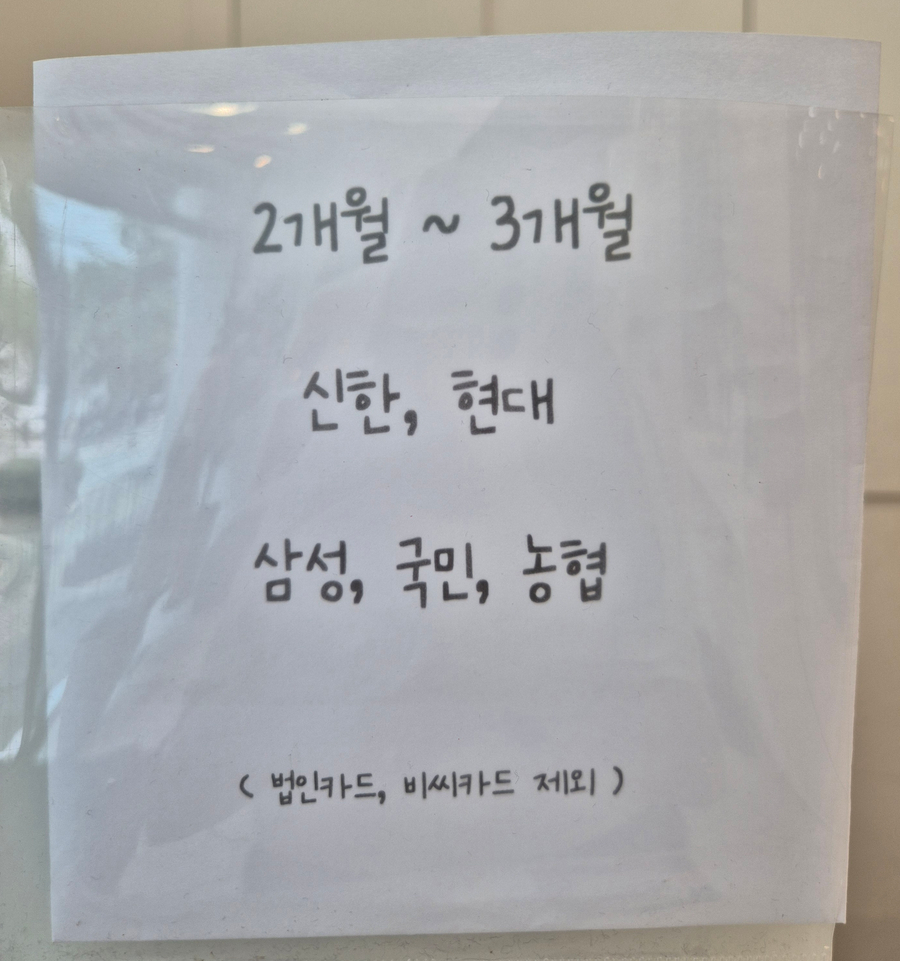 2개월 ~ 3개월
신한, 현대
삼성, 국민, 농협
( 법인카드, 비씨카드 제외 )